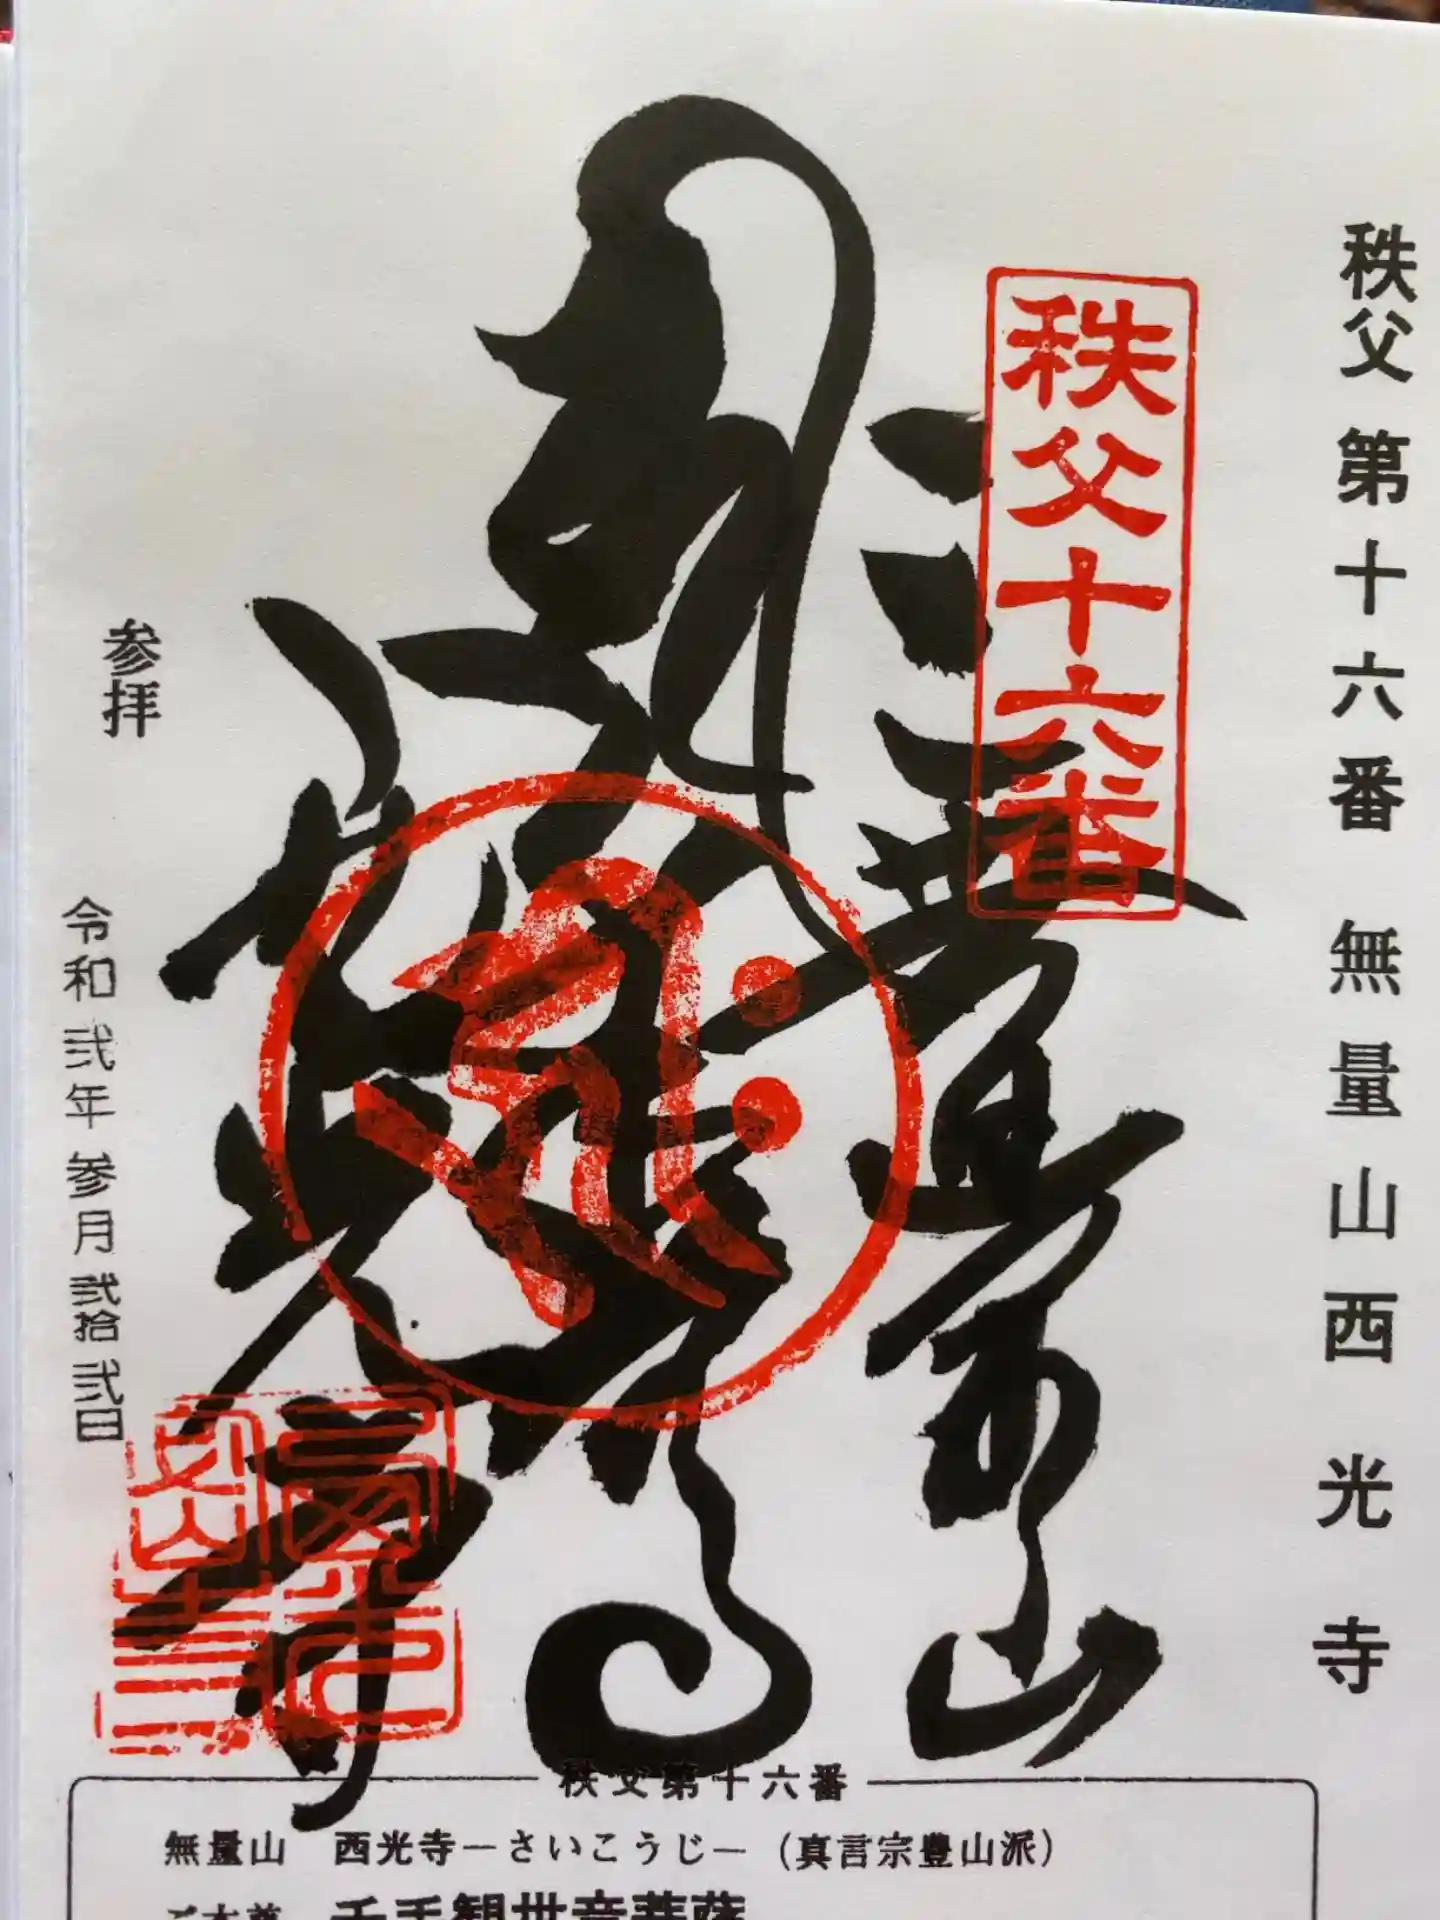 秩父第十六番 無量山西光寺
秩父十六番
無量山
西光寺
参拝
令和弐年参月弐拾弐日
秩父第十六番
無量山 西光寺―さいこうじ―(真言宗豊山派)
ご本尊 千手観世音菩薩